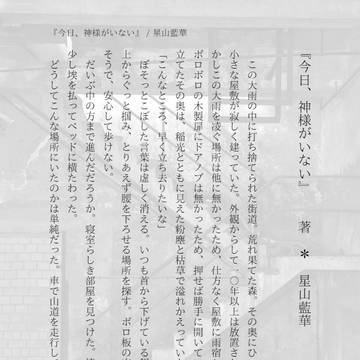 『今日、神様がいない』 / 星山藍華
『今日、神様がいない』　著　＊　星山藍華
この大雨の中に打ち捨てられた街道、荒れ果てた森。その奥にひ
小さな屋敷が寂しく建っていた。外観からして一〇〇年以上は放置さ
かしこの大雨を凌ぐ場所は他に無かったため、仕方なく屋敷に雨宿
ボロボロの木製扉にドアノブは無かったため、押せば勝手に開いて
立てたその奥は、稲光とともに見えた粉塵と枯草で溢れかえってい
「こんなところ、早く立ち去りたいな」
ぽそっとこぼした言葉は虚しく消える。いつも首から下げている
上からぐっと掴み、とりあえず腰を下ろせる場所を探す。ボロ板の
そうで、安心して歩けない。
だいぶ中の方まで進んだだろうか、寝室らしき部屋を見つけた。
少し埃を払ってベッドに横たわった。
どうしてこんな場所にいたのかは単純だった。車で山道を走行し